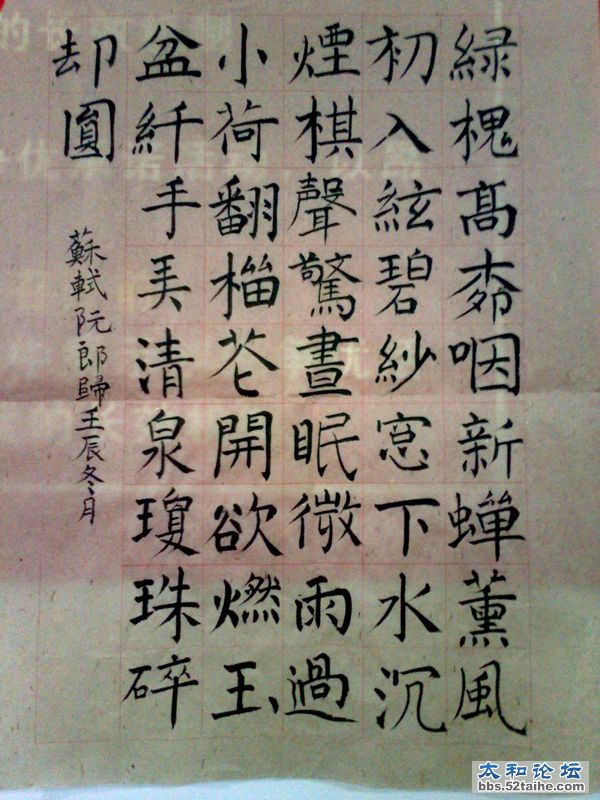 緑槐髙柳咽新蟬薰風
初入絃碧紗窓下水沉
煙棋聲驚晝眠微雨過
小荷翻榴花開欲燃玉
盆纤手弄清泉瓊珠碎
却圓
蘇軾阮郎歸壬辰冬月
太和论坛
bbs.52taihe.com